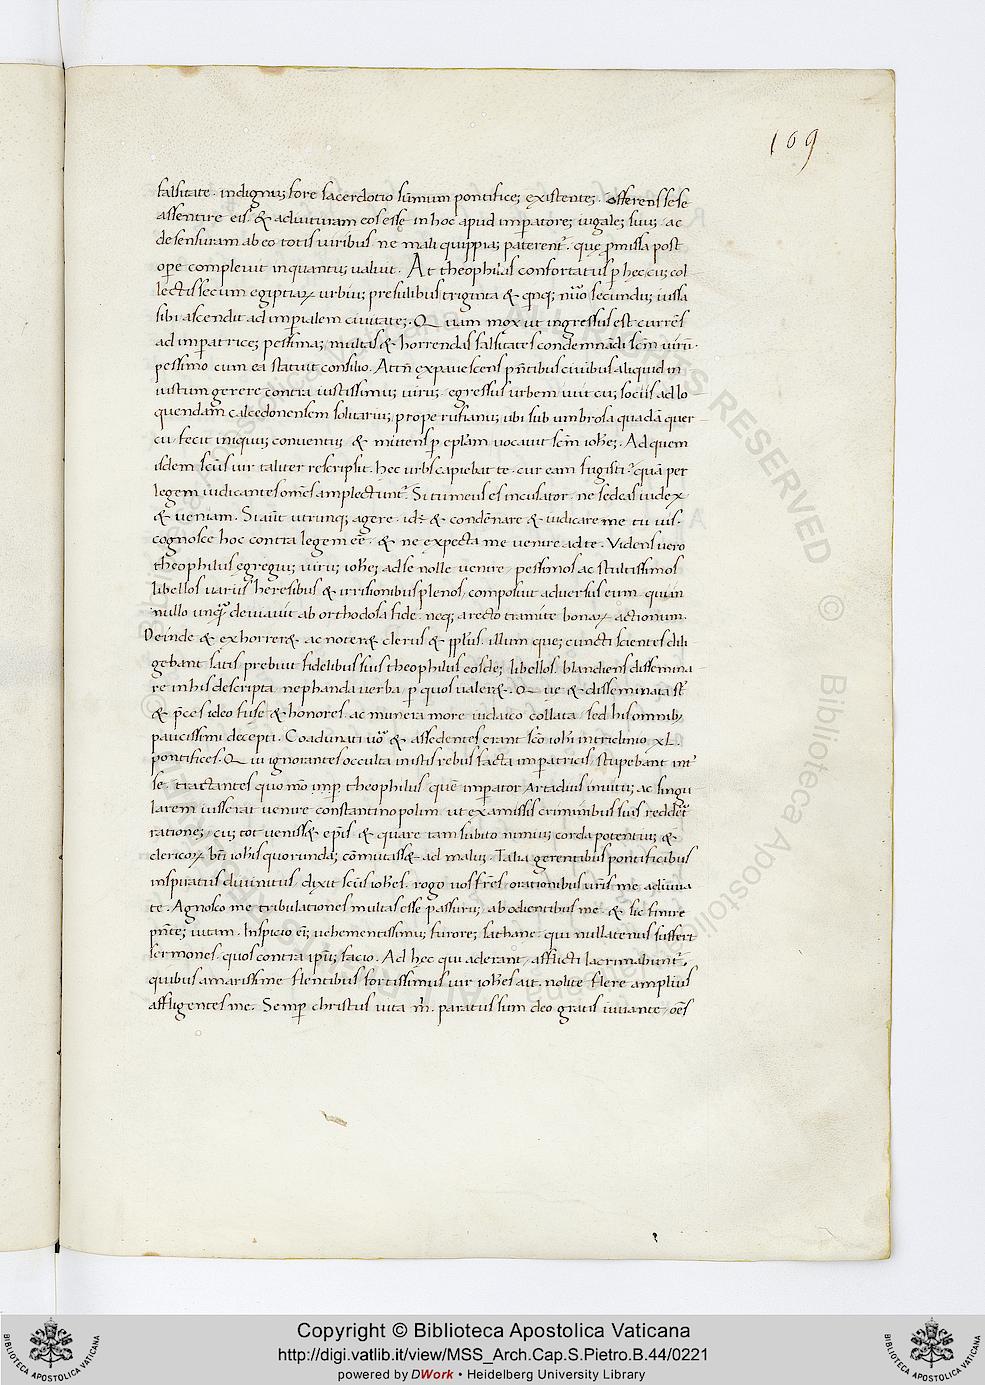 169
falsitate. indignus fore sacerdotio sūmum pontificē existentē. offerens sese
assentire eis. & adiuturam eos esse in hoc apud imperatorē iugalē suū. ac
defensuram ab eo totis uiribus ne mali quippiā paterent̄. quę p̄missa post
ope compleuit inquantū ualuit. At theophilus confortatus p̄ hęc cū col
lectis secum egiptiaꝝ urbiū presulibus triginta & qnq; n̄uo secundū iussa
sibi ascendit ad imperialem ciuitatē. Quam mox ut ingressus est currēs
ad imperatricē pessimā multas & horrendas falsitates condemnādi scm̄ uirū.
pessimo cum ea statuit consilio. Attn̄ expauescens p̄ntibus ciuibus aliquid in
iustum gerere contra iustissimū uirū. egressus urbem iuit cū sociis ad lo
quendam calcedonensem solitariū prope rufianū ubi sub umbrosa quadā quer
cu. fecit iniquū conuentū & mittens p̄ ep̄lam uocauit scm̄ ioh̄e. Ad quem
isdem sc̄us uir taliter rescripsit. hec urbs capiebat te. cur eam fugisti? quā per
legem iudicantes om̄s amplectunt̄. Si tu meus es incusator. ne sedeas iudex
& ueniam. Si aūt utrunq; agere. id ē & condēnare & iudicare me tu uis.
cognosce hoc contra legem eē. & ne expecta me uenire ad te. Videns uero
theophilus egregiū uirū ioh̄e ad se nolle uenire. pessimos ac stultissimos
libellos uariis heresibus & irrisionibus plenos composuit aduersus eum. qui in
nullo unq̄ deuiauit ab orthodoxa fide. neq; a recto tramite bonaꝝ actionum.
Deinde & ex horrer& ac noter& clerus & pp̄lus. illum quē cuncti scientes dili
gebant satis. prebuit fidelibus suis theophilus eosdē libellos. blandiens dissemina
re in his descripta nephanda uerba p̄ quos ualer&. Quę & disseminata st̄
& p̄ces ideo fuse & honores. ac munera more iudaico collata. sed his omnib;
paucissimi decepti. Coadunati uō & assedentes erant sc̄o ioh̄i in triclinio xL.
pontifices. Qui ignorantes occulta in istis rebus facta imperatricis. stupebant int̄
se. tractantes quo mō imp̄ theophilus quē imperator Arcadius inuitū ac singu
larem iusserat uenire constantinopolim ut examissis criminibus suis redder&
rationē. cū tot ueniss& ep̄is & quare tam subito nimiū corda potentiū &
clericoꝝ bt̄i ioh̄is quorundā cōmutass& ad malū. Talia gerentibus pontificibus
inspiratus diuinitus. dixit sc̄us ioh̄es. rogo uos fr̄es orationibus ur̄is me adiuua
te. Agnosco me tribulationes multas esse passurū. ab odientibus me. & sic finire
p̄ntē uitam. Inspicio ei uehementissimū furorē sathane. qui nullatenus suffert
sermones. quos contra ipsū facio. Ad hęc qui aderant. afflicti lacrimabunt̄.
quibus amarissime flentibus fortissimus uir ioh̄es ait. nolite flere amplius
affligentes me. Semp̄ christus uita m̄. paratus sum deo gratis iuuante. oēs
Copyright © Biblioteca Apostolica Vaticana
http://digi.vatlib.it/view/MSS_Arch.Cap.S.Pietro.B.44/0221
powered by DWork • Heidelberg University Library